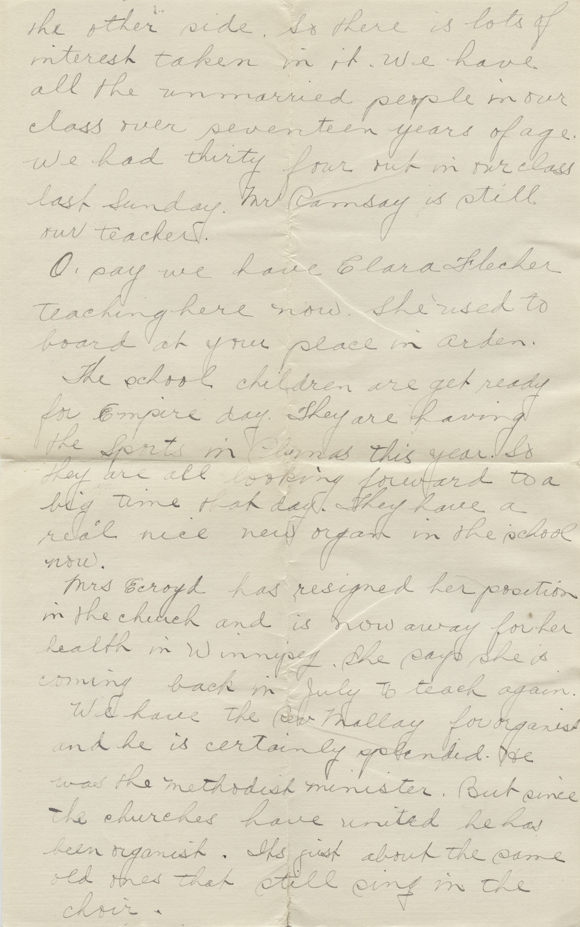 the other side. So there is lots of
interest taken in it. We have
all the unmarried people in our
class over seventeen years of age.
We had thirty four out in our class
last Sunday. Mr Ramsay is still
our teacher.
O. say we have Clara Flecher
teaching here now. She used to
board at your place in Arden.
The school children are get ready
for Empire day. They are having
the Sports in this year. So
they are all looking forward to a
big time that day. They have a
real nice new organ in the school
now.
Mrs Ecroyd has resigned her position
in the church and is now away for her
health in Winnipeg. She says she is
coming back in July to teach again.
We have the Rev Mallay for organist
and he is certainly splendid. He
was the methodist minister. But since
the churches have united he has
been organist. Its just about the same
old ones that still sing in the
choir.